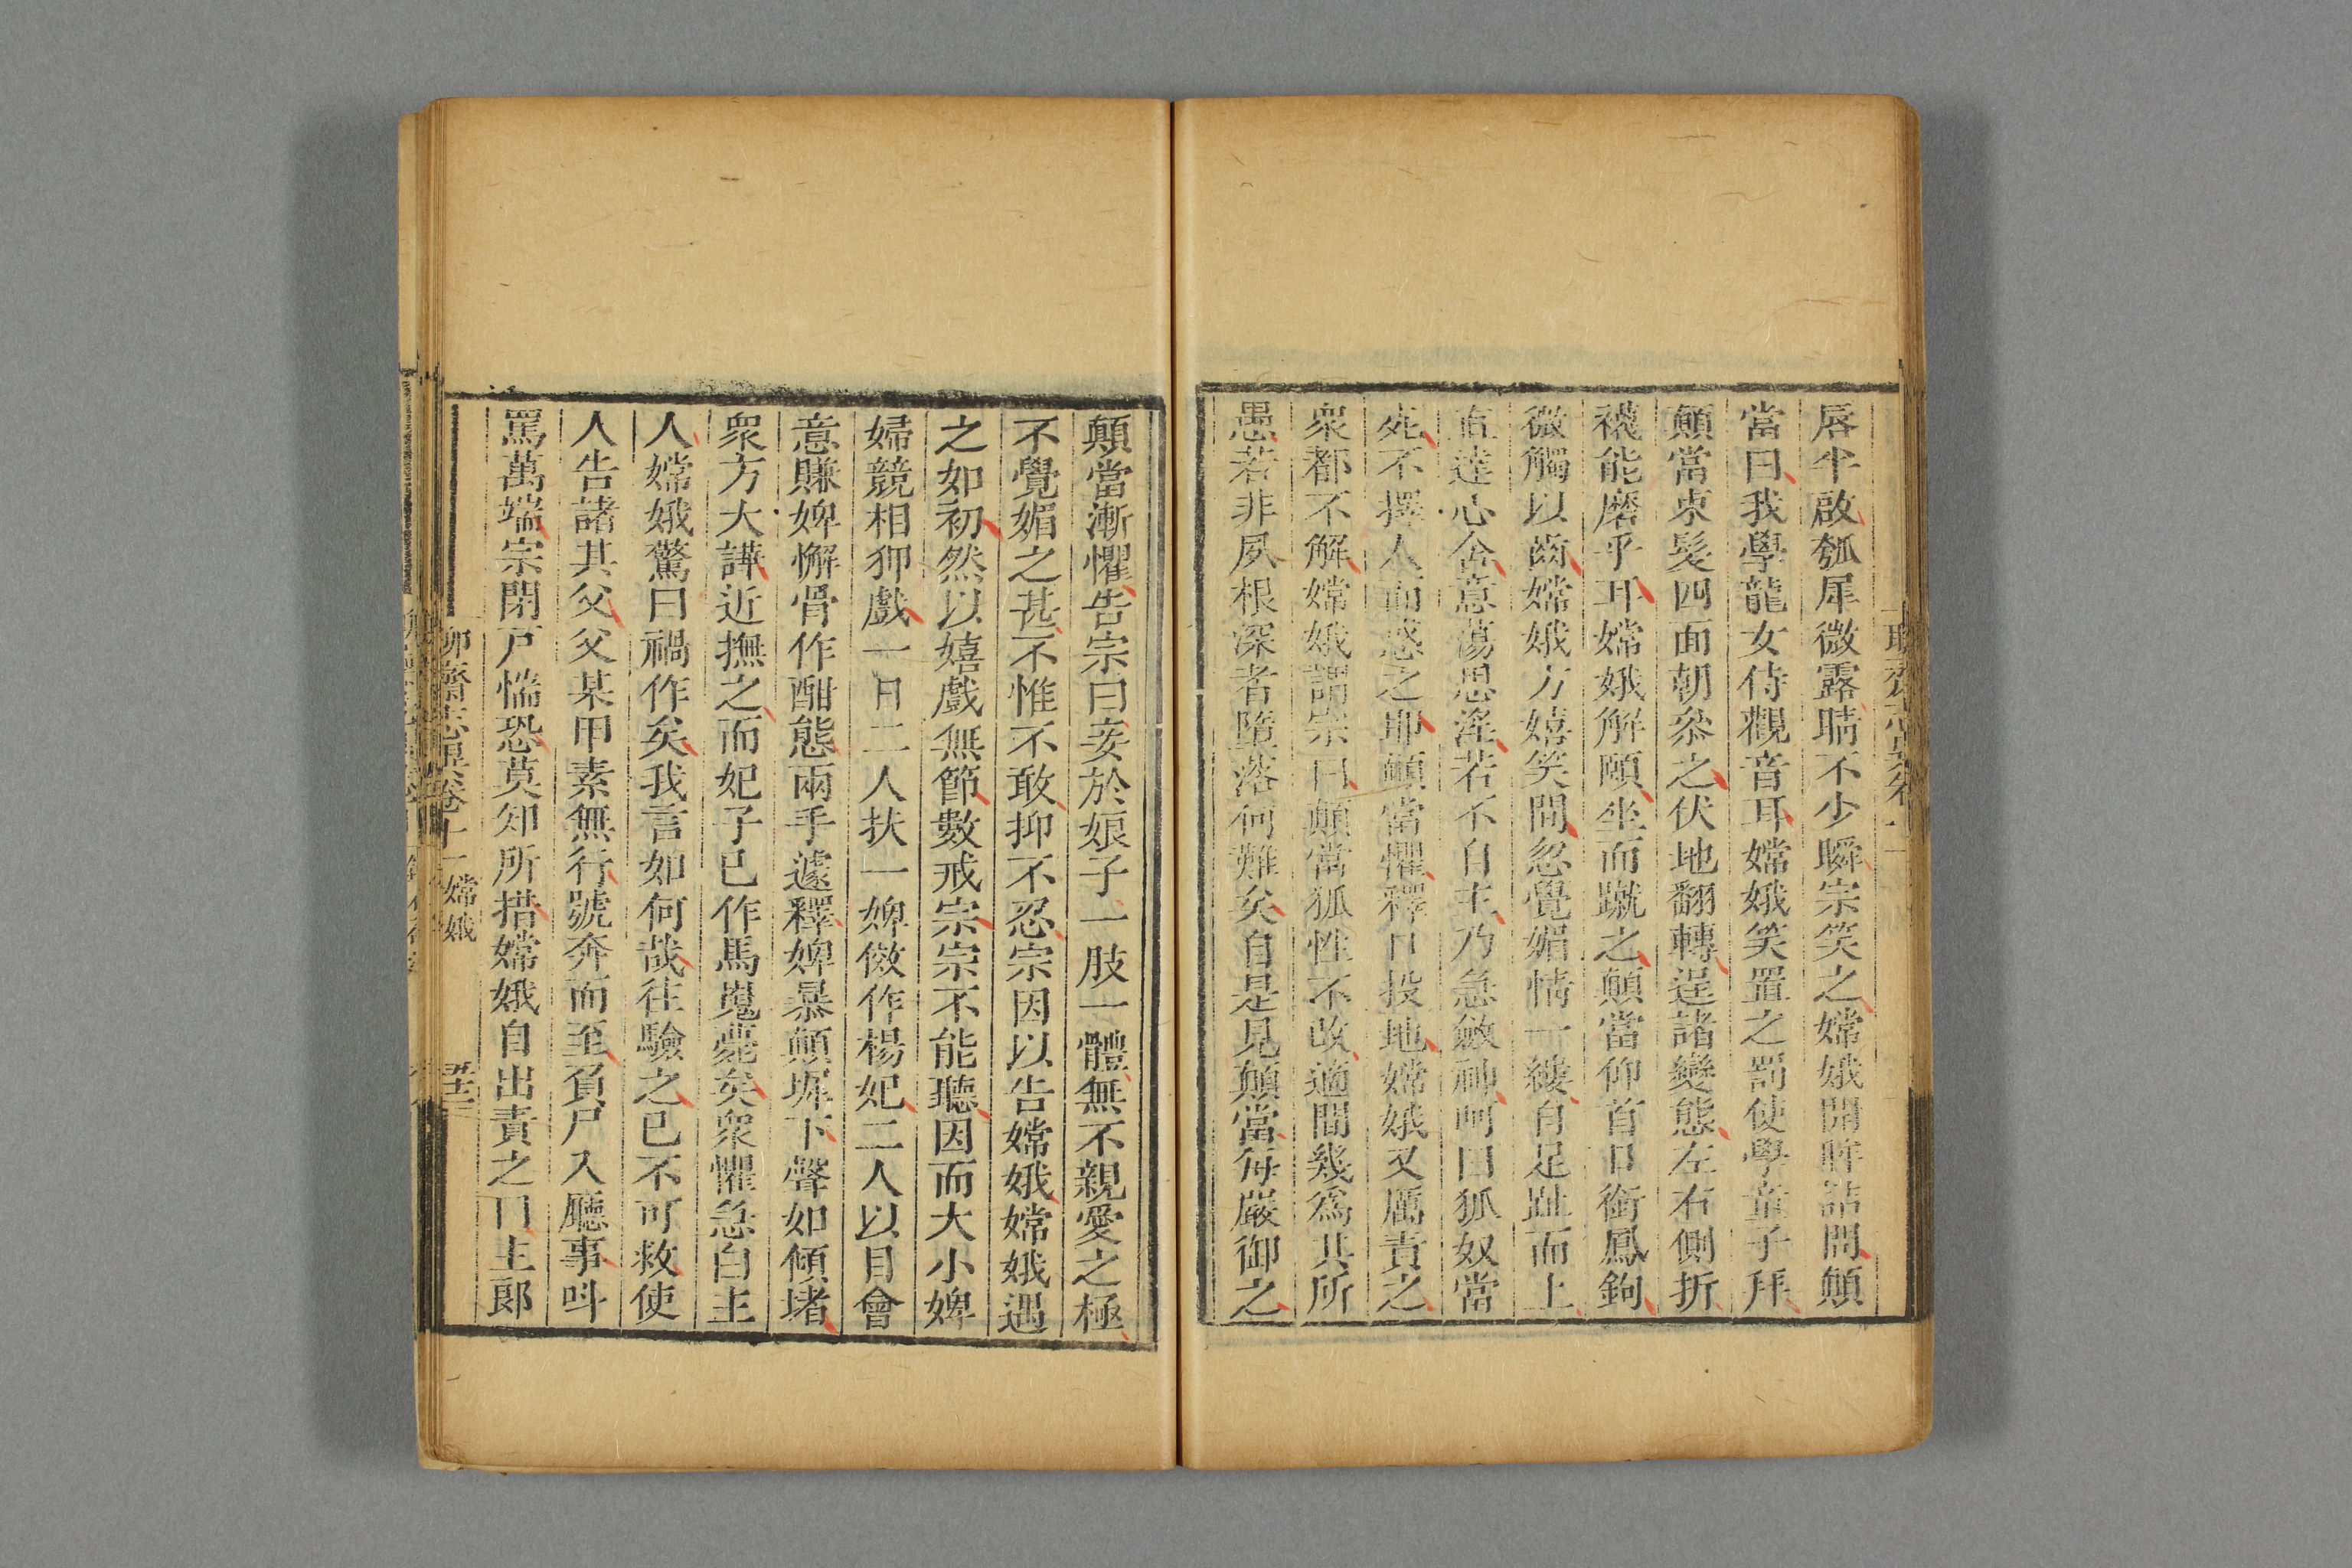 唇半啟瓠犀微露睛不少瞬宗笑之嫦娥開眸詰問顛
當曰我學龍女侍觀音耳嫦娥笑罵之罰使學童子拜
顛當束髮四面朝叅之伏地翻轉逞諸變態左右側折
襪能磨乎耳嫦娥解頤坐而蹴之顛當仰首口銜鳳鉤
微觸以齒嫦娥方嬉笑間忽覺媚情一縷自足趾而上
直達心舍意蕩思淫若不自主乃急斂神呵曰狐奴當
死不擇人而惑之耶顛當懼釋口投地嫦娥又厲責之
衆都不解嫦娥謂宗曰顛當狐性不改適間幾爲其所
愚若非夙根深者墮落何難矣自是見顛當每嚴御之
顛當漸懼告宗曰妾於娘子一肢一體無不親愛之極
不覺媚之甚不惟不敢抑不忍宗因以告嫦娥嫦娥遇
之如初然以嬉戲無節數戒宗宗不能聽因而大小婢
婦競相狎戲一日二人扶一婢傚作楊妃二人以目會
意賺婢懈骨作酣態兩手遽釋婢暴顛墀下聲如傾堵
衆方大譁近撫之而妃子已作馬嵬薨矣衆懼急白主
人嫦娥驚曰禍作矣我言如何哉往驗之已不可救使
人告諸其父父某甲素無行號奔而至負尸入廳事呌
罵萬端宗閉戸惴恐莫知所措嫦娥自出責之曰主郎
聊齋志異卷十一 嫦娥